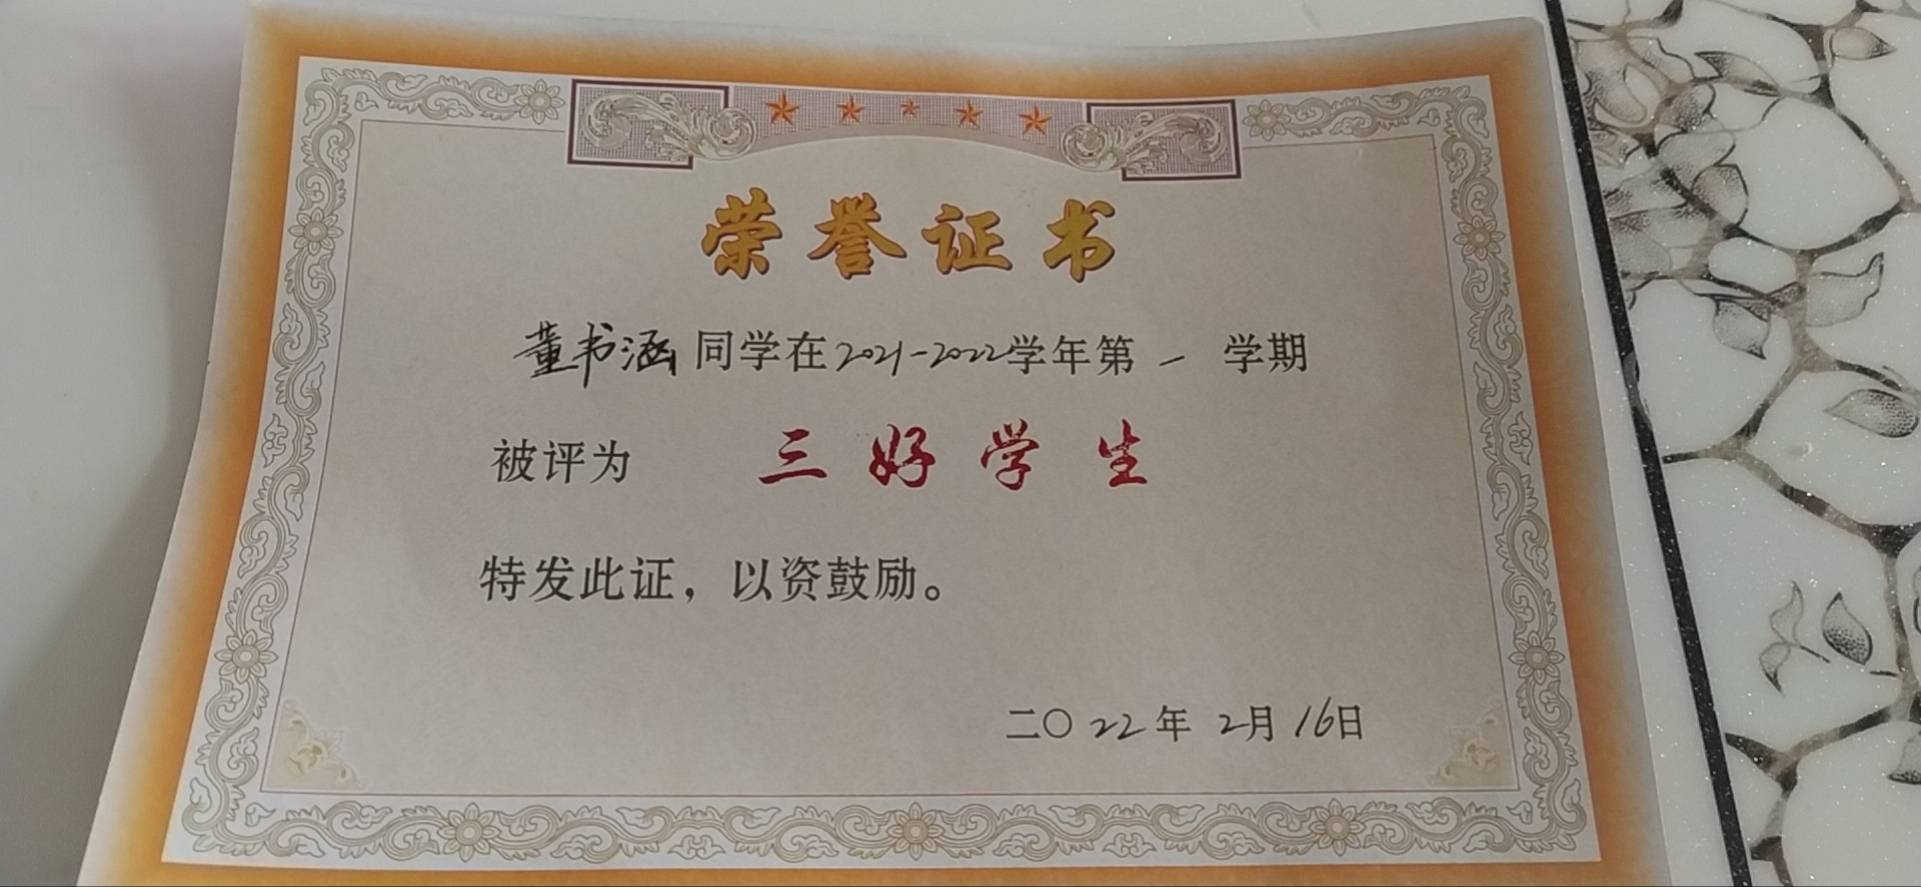 荣誉证书
董书涵同学在2021-2022学年第一学期
被评为 三好学生
特发此证，以资鼓励。
二〇22年2月16日